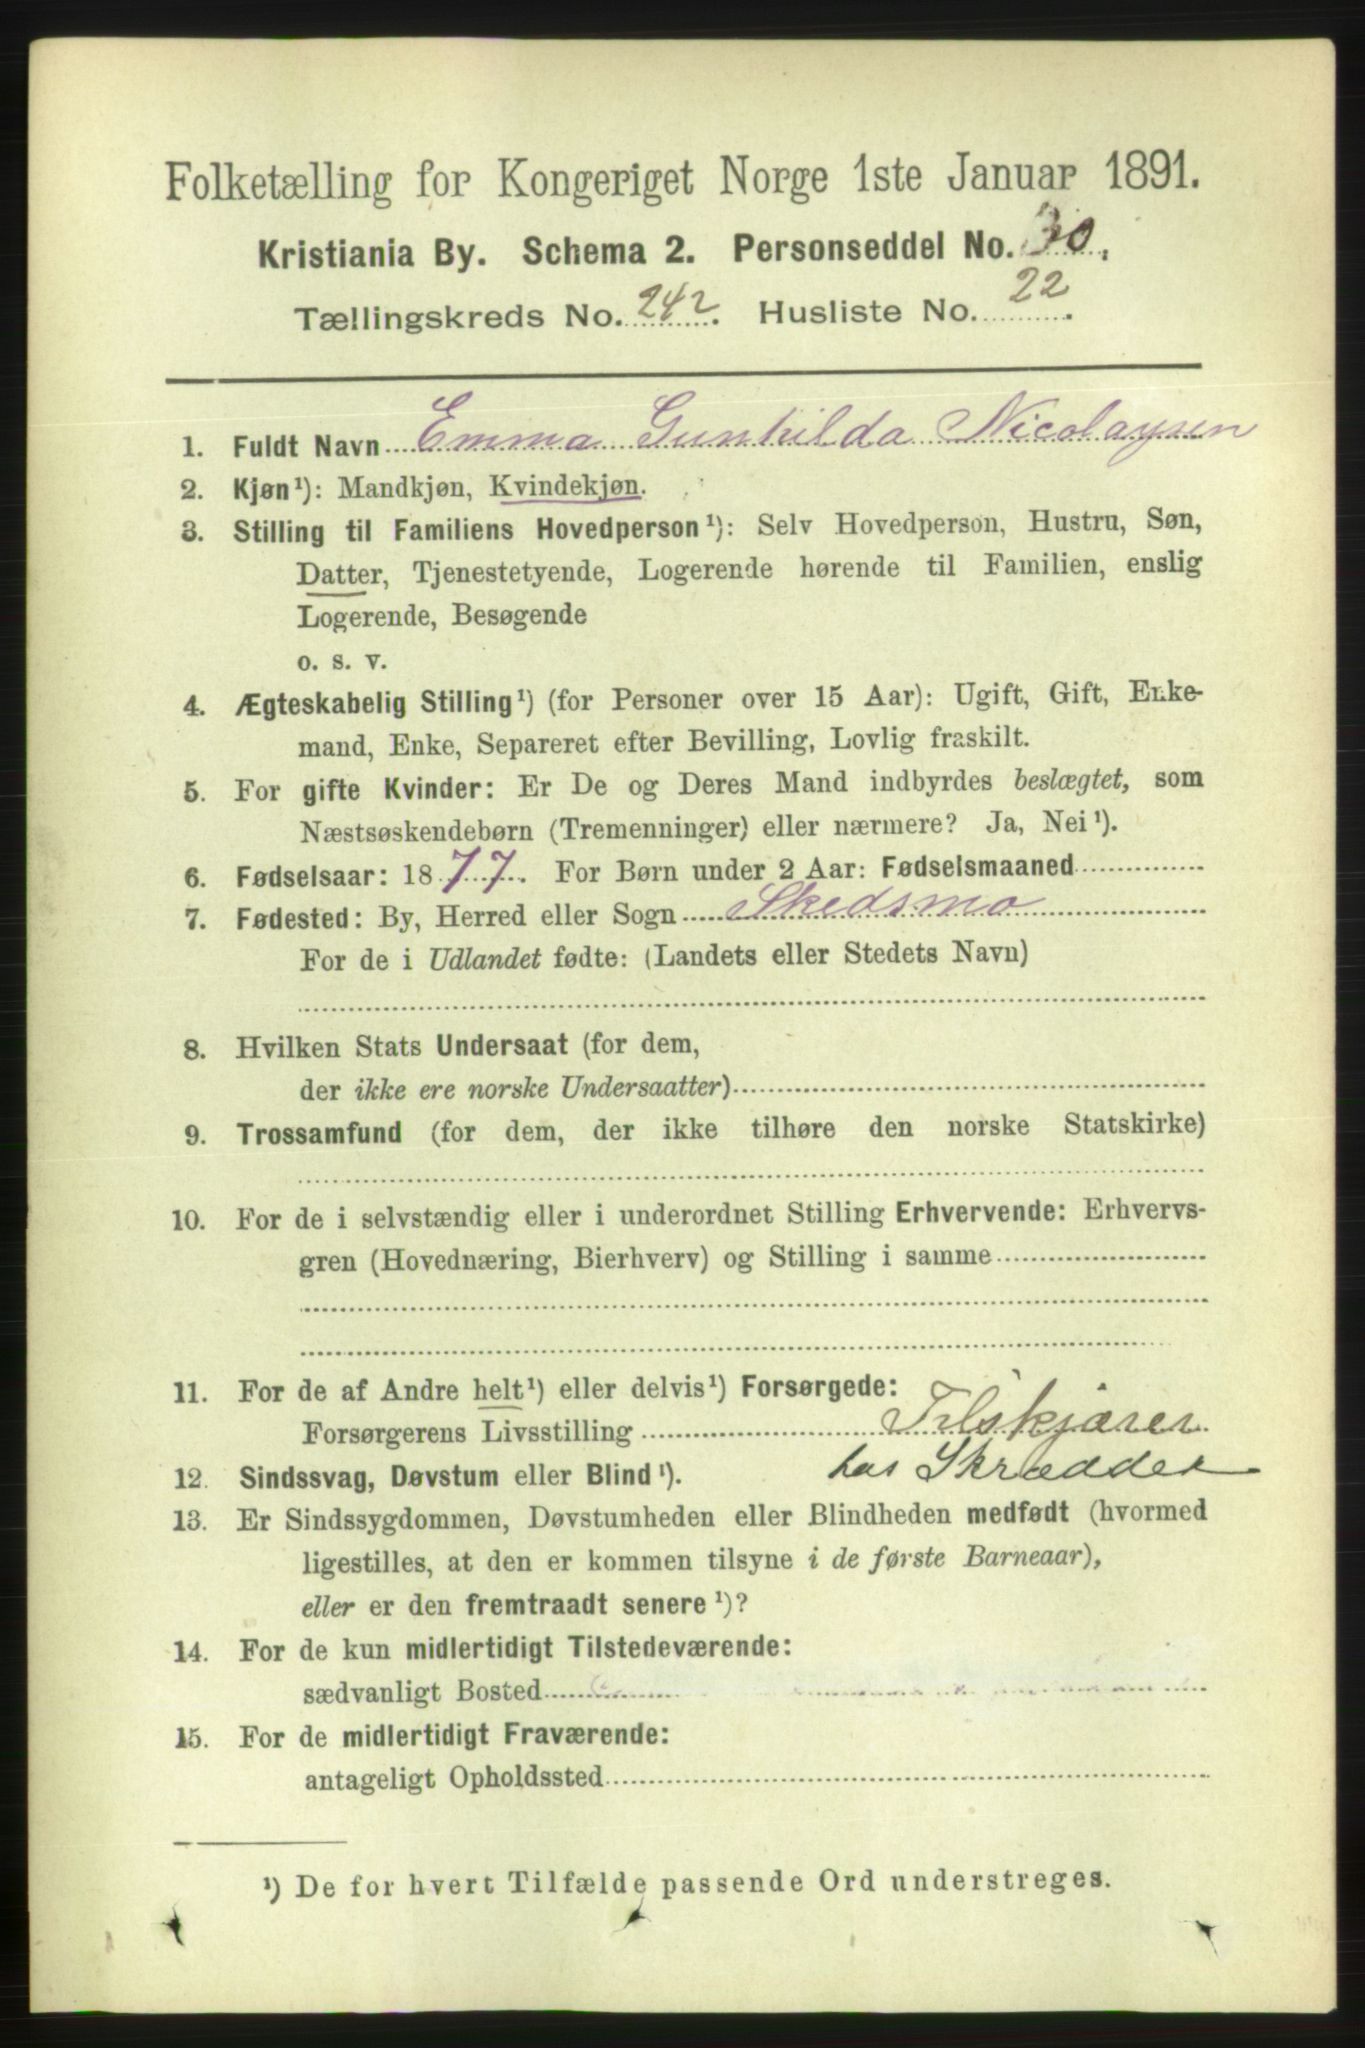 Folketælling for Kongeriget Norge 1ste Januar 1891.
Kristiania By. Schema 2. Personseddel No. 30.
Tællingskreds No. 242. Husliste No. 22.
1. Fuldt Navn Emma Gunhilda Nicolaysen
2. Kjøn¹): Mandkjøn, Kvindekjøn.
3. Stilling til Familiens Hovedperson¹): Selv Hovedperson, Hustru, Søn,
Datter, Tjenestetyende, Logerende hørende til Familien, enslig
Logerende, Besøgende
o. s. v.
4. Ægteskabelig Stilling¹) (for Personer over 15 Aar): Ugift, Gift, Enke-
mand, Enke, Separeret efter Bevilling, Lovlig fraskilt.
5. For gifte Kvinder: Er De og Deres Mand indbyrdes beslægtet, som
Næstsøskendebørn (Tremenninger) eller nærmere? Ja, Nei¹).
6. Fødselsaar: 1877. For Børn under 2 Aar: Fødselsmaaned
7. Fødested: By, Herred eller Sogn Skedsmo
For de i Udlandet fødte: (Landets eller Stedets Navn)
8. Hvilken Stats Undersaat (for dem,
der ikke ere norske Undersaatter)
9. Trossamfund (for dem, der ikke tilhøre den norske Statskirke)
10. For de i selvstændig eller i underordnet Stilling Erhvervende: Erhvervs-
gren (Hovednæring, Bierhverv) og Stilling i samme
11. For de af Andre helt¹) eller delvis¹) Forsørgede:
Forsørgerens Livsstilling Tilskjærer
hos Skrædder
12. Sindssvag, Døvstum eller Blind¹).
13. Er Sindssygdommen, Døvstumheden eller Blindheden medfødt (hvormed
ligestilles, at den er kommen tilsyne i de første Barneaar),
eller er den fremtraadt senere¹)?
14. For de kun midlertidigt Tilstedeværende:
sædvanligt Bosted
15. For de midlertidigt Fraværende:
antageligt Opholdssted
¹) De for hvert Tilfælde passende Ord understreges.